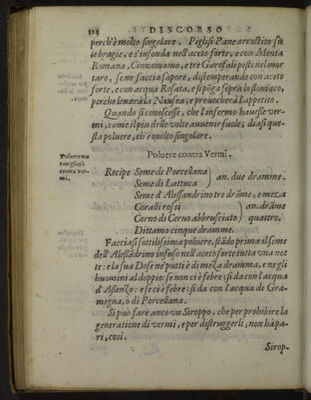 114 DISCORSO
perch'è molto singolare. Piglisi Pane arrostito su
le bragie, e s'infonda nell'aceto forte, e con Menta
Romana, Cinnamomo, e tre Garofali pesti nel mor
taro, se ne faccia sapore, distemperando con aceto
forte, e con acqua Rosata, e si pōga sopra lo stomaco,
perche leuarà la Nausea, e prouocherà l'appetito.
Quando si conoscesse, che l'infermo hauesse ver-
mi, come il più delle volte auuenir suole, dia si que-
sta poluere, ch'è molto singolare.
Poluere contra Vermi.
contra ver-
mi.
Recipe Seme di Porcellana
Seme di Lattuca
an. due dramme.
Seme d'Alessandrino tre drāme, e meza
Coralli rossi
Corno di Ceruo abbrusciato
an. drāme
quattro.
Dittamo cinque dramme.
Facciasi sottilissima poluere, stādo prima il seme
dell'Alessādrino infuso nell'aceto forte tutta vna not
te: e la sua Dose ne' putti è di meza dramma, e negli
huomini al doppio: se non c'è febre: si dà con l'acqua
d'Assenzo: e se ci è febre: si dà con l'acqua di Gra-
megna, ò di Porcellana.
Si può fare ancor vn Siroppo, che per prohibire la
generatione di vermi, e per distruggerli, non hà pa-
ri, così.
Sirop-